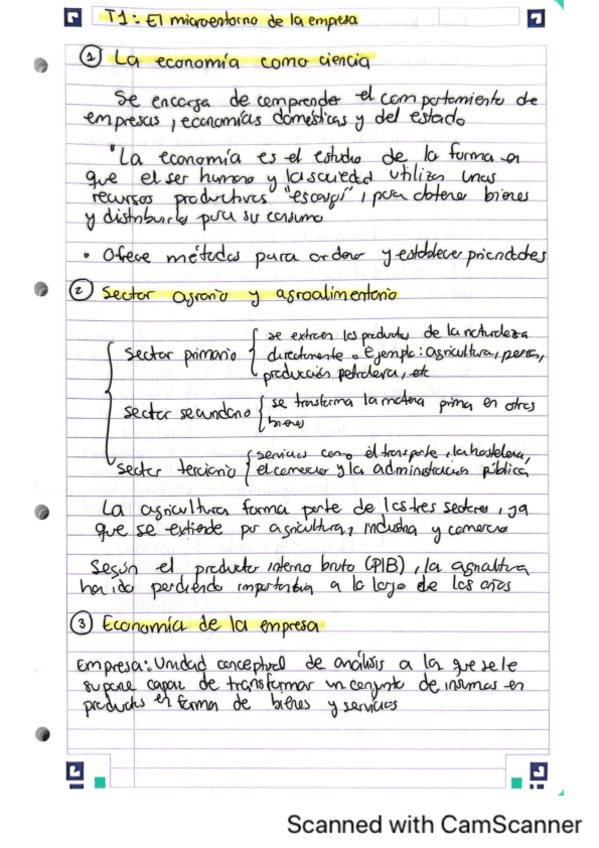 T1: El microentorno de la empresa
① La economía como ciencia
Se encarga de comprender el comportamiento de
empresas, economías domésticas y del estado
"La economía es el estudio de la forma en
que el ser humano y la sociedad utilizan unos
recursos productivos "escasos", para obtener bienes
y distribuirlos para su consumo
• Ofrece métodos para ordenar y establecer prioridades
② Sector agrario y agroalimentario
Sector primario { se extraen los productos de la naturaleza
directamente. Ejemplo: agricultura, pesca,
producción petrolera, etc
Sector secundario { se transforma la materia prima en otros
bienes
Sector terciario { servicios como el transporte, la hostelería,
el comercio y la administración pública
La agricultura forma parte de los tres sectores, ya
que se extiende por agricultura, industria y comercio
Según el producto interno bruto (PIB), la agricultura
ha ido perdiendo importancia a lo largo de los años
③ Economía de la empresa
Empresa: Unidad conceptual de análisis a la que se le
supone capaz de transformar un conjunto de insumos en
productos en forma de bienes y servicios
Scanned with CamScanner